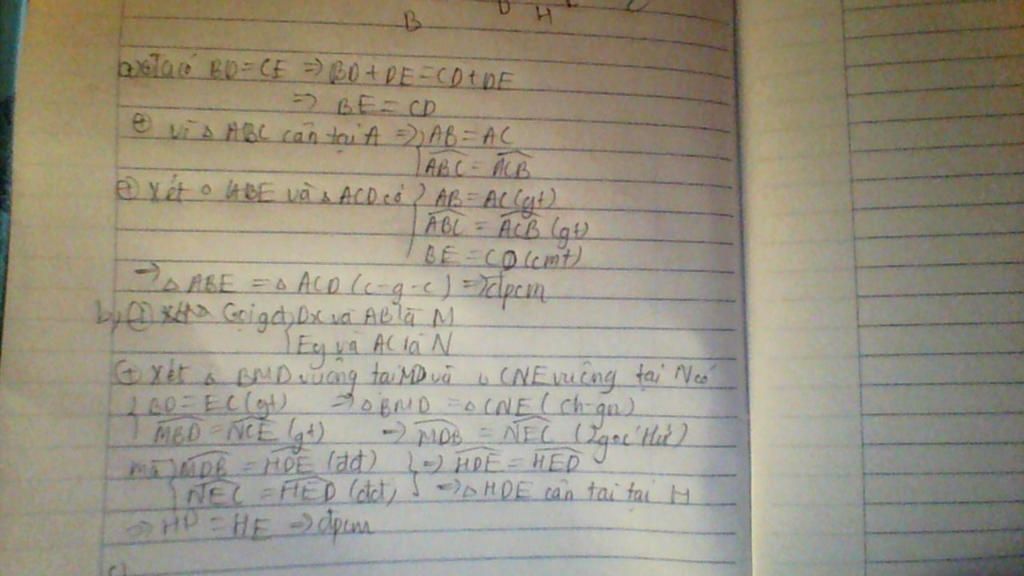 B D H
a, Ta có BD = CE => BD + DE = CD + DE
=> BE = CD
+ Vì △ ABC cân tại A => { AB = AC
ABC = ACB
+ Xét △ ABE và △ ACD có { AB = AC (gt)
ABC = ACB (gt)
BE = CD (cmt)
=> △ ABE = △ ACD (c-g-c) => đpcm
b, + Gọi gđ Dx và AB là M
Ey và AC là N
+ Xét △ BMD vuông tại M và △ CNE vuông tại N có
{ BD = EC (gt) => △ BMD = △ CNE (ch-gn)
MBD = NCE (gt) => MDB = NEC (2 góc t/ư)
mà { MDB = HDE (đđ) } => HDE = HED
NEC = HED (đđ) => △ HDE cân tai tại H
=> HD = HE => đpcm
c)